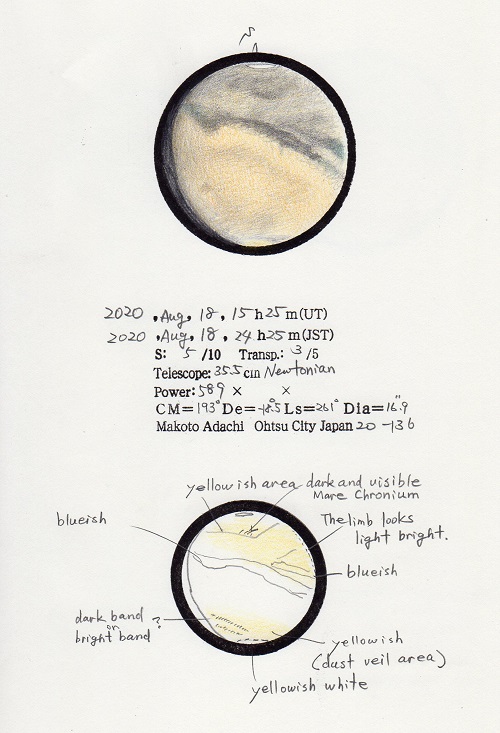 S
2020 . Aug. 18, 15h25m(UT)
2020 . Aug. 18, 24h25m(JST)
S: 5 /10 Transp.: 3 /5
Telescope: 35.5cm Newtonian
Power: 589 × ×
CM=193° De=-18.5° Ls=261° Dia=16.9"
Makoto Adachi Ohtsu City Japan 20-136
yellowish area
dark and visible
Mare Chronium
blueish
The limb looks
light bright.
blueish
dark band
or
bright band ?
yellowish
(dust veil area)
yellowish white